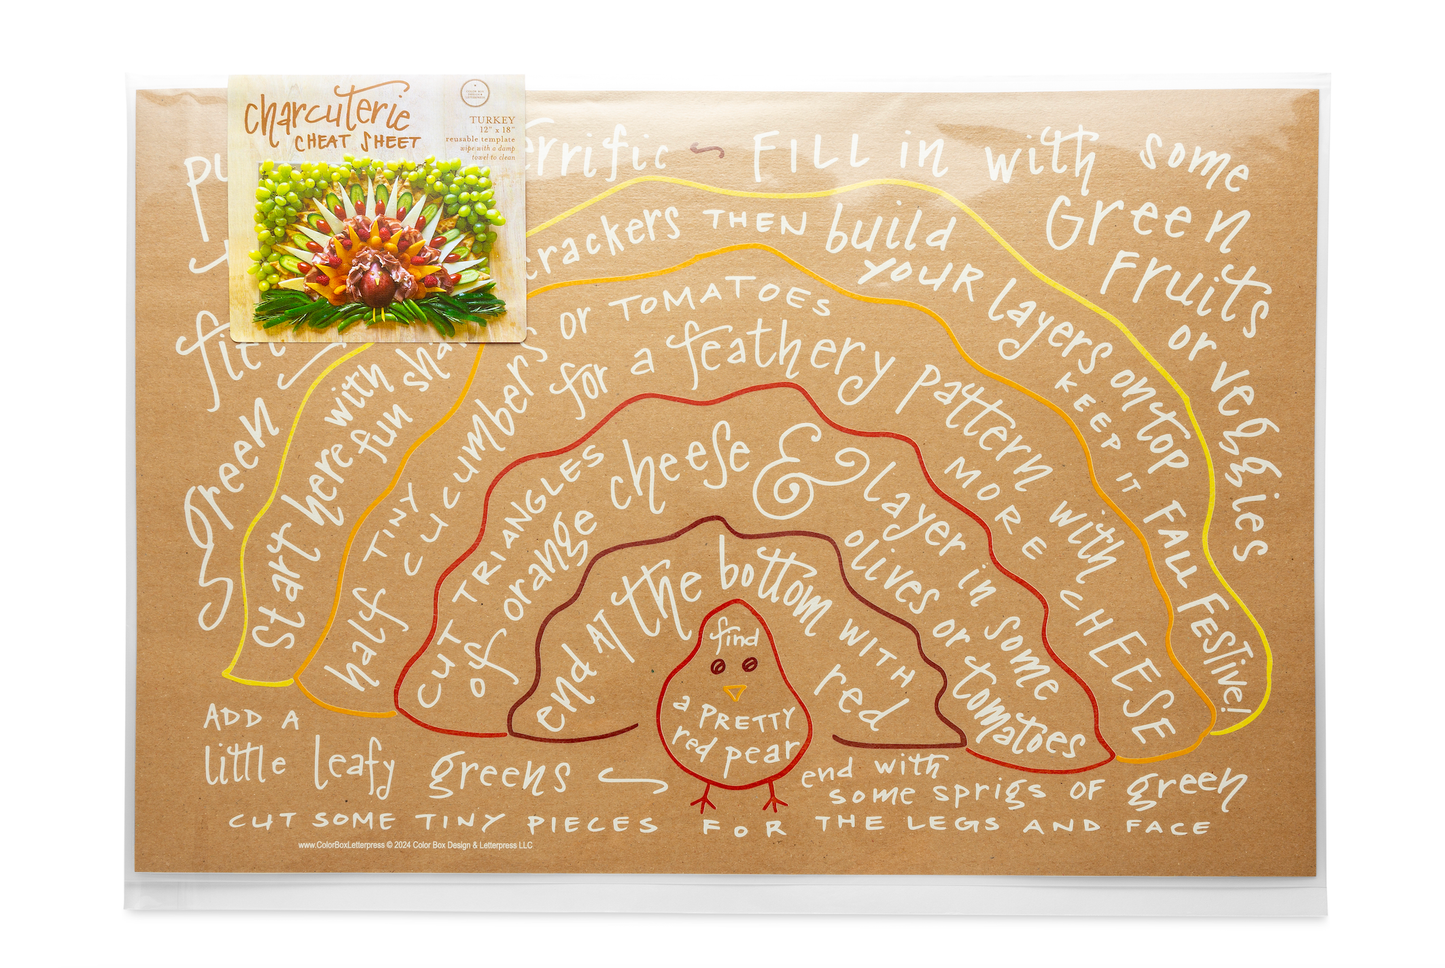 charcuterie
CHEAT SHEET
TURKEY
12" x 18"
reusable template
wipe with a damp
towel to clean
FILL in with some
Green
Fruits
or veggies
green
Start here with fun crackers THEN build YOUR layers on top KEEP IT FALL FESTIVE!
half TINY cucumbers or TOMATOES for a feathery pattern with MORE CHEESE
CUT TRIANGLES of orange cheese & layer in some olives or tomatoes
end AT the bottom WITH red
find
a PRETTY
red pear
ADD A
little leafy greens
end with
some sprigs OF green
CUT SOME TINY PIECES FOR THE LEGS AND FACE
www.ColorBoxLetterpress © 2024 Color Box Design & Letterpress LLC